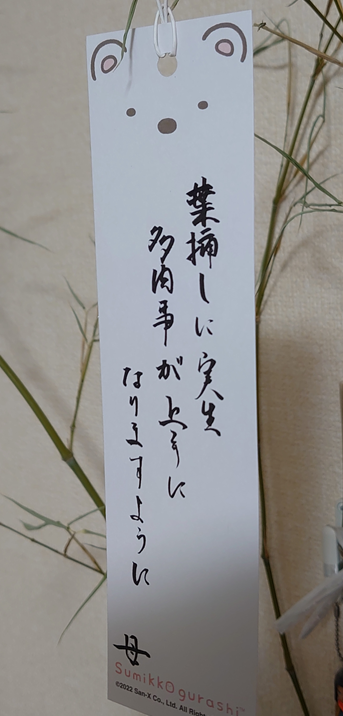 葉挿しに実生
多肉事が上手に
なりますように
母
Sumikkogurashi™
©2022 San-X Co., Ltd. All Rights